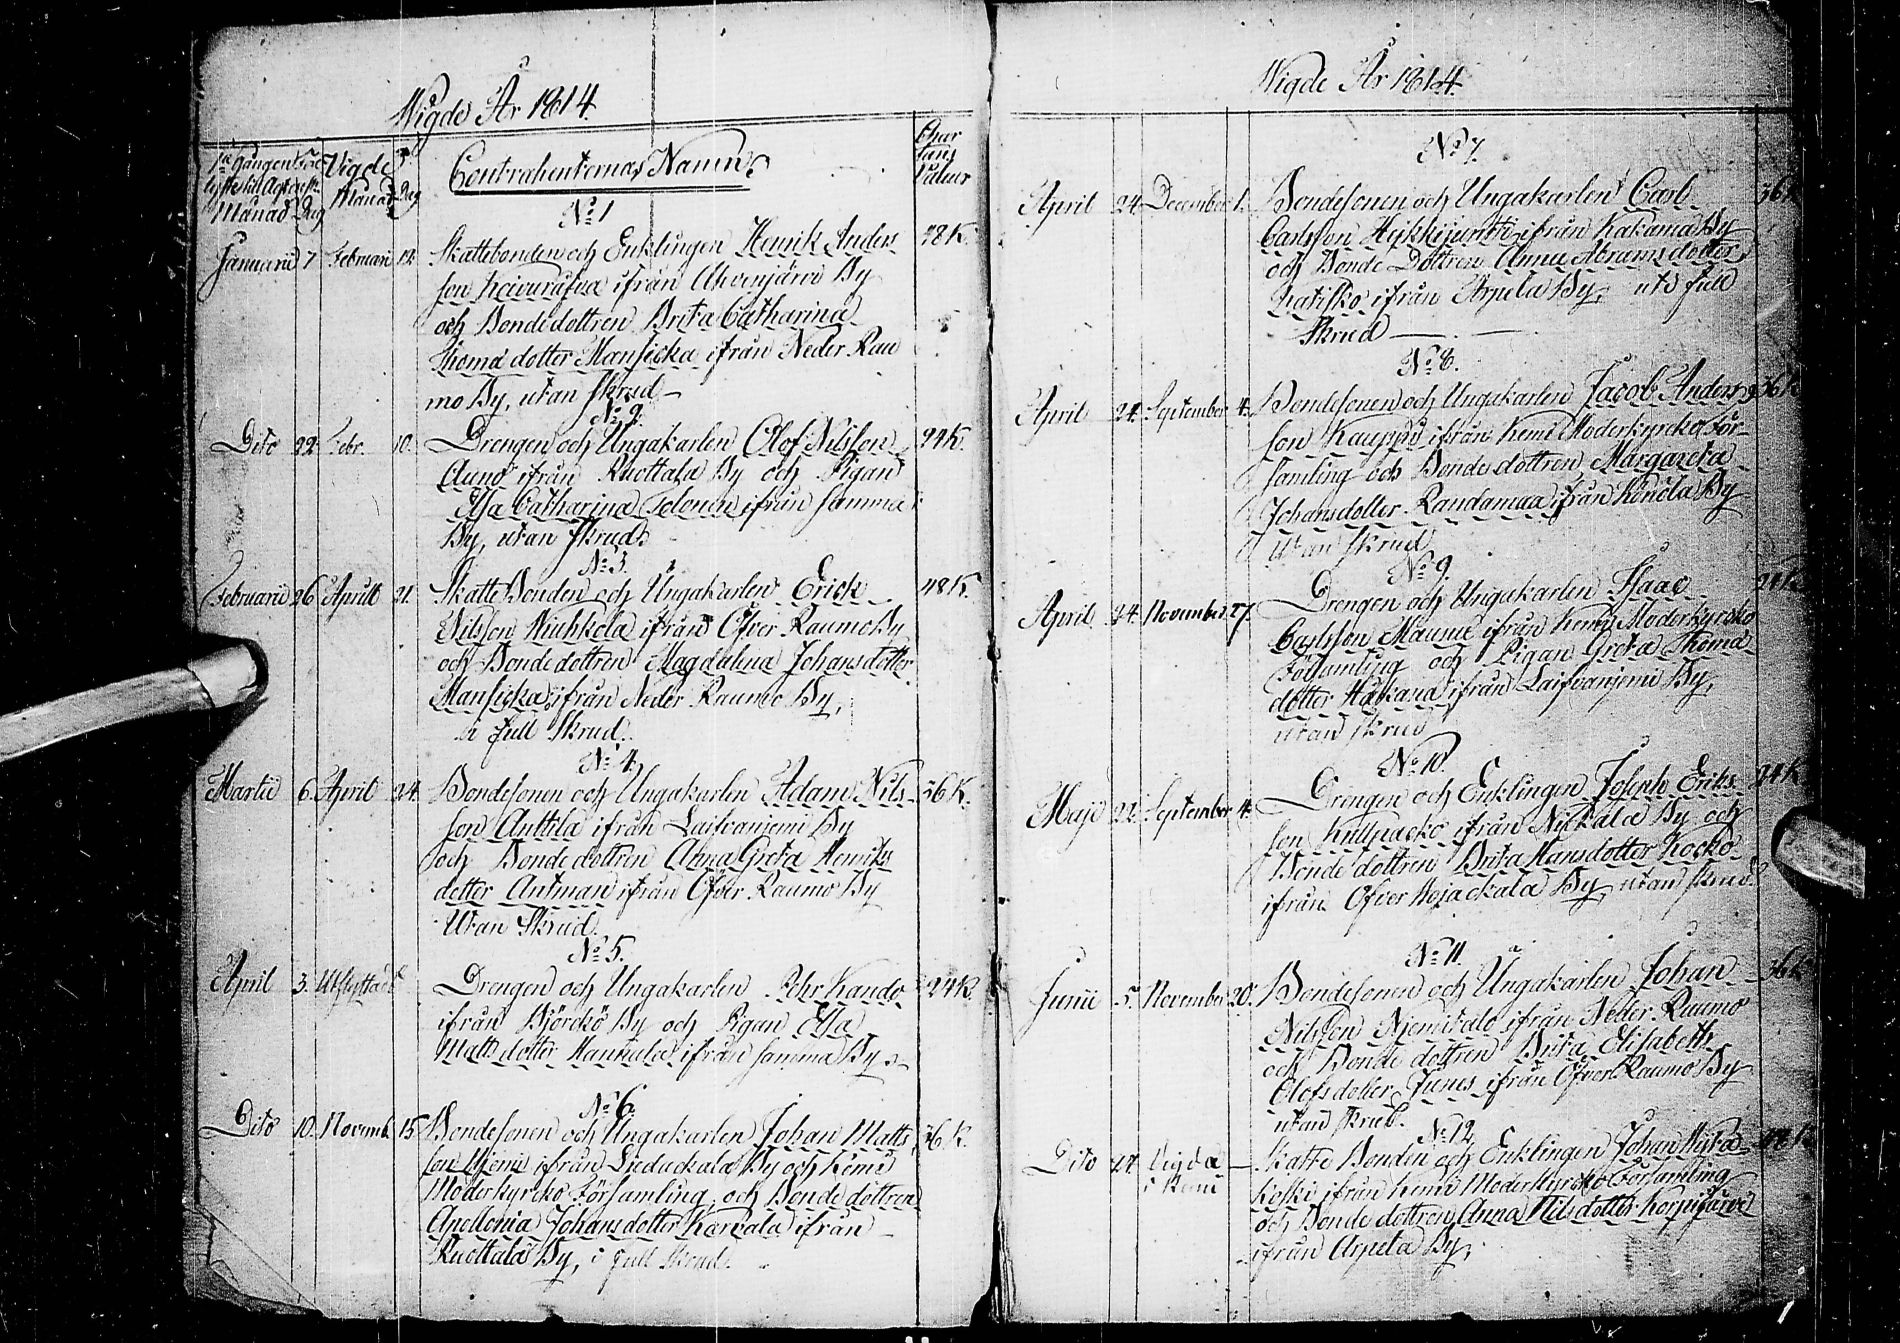 Wigde År 1814.
Månad Dag
Wigde
Månad Dag
Contrahenternas Namn.
Char
No 1
Januarii 7 Februari 12. Skattebonden och Enklingen Henrik Anders 48 K.
son ifrån Akvenjärvi By
och Bondedottren Brita Catharina
Thoma dotter Mansicka ifrån Neder Rau
mo By, utan skrud
No 2.
Dito 22. Febr. 10. Drengen och Ungakarlen Olof Nilsson 24 K.
ifrån Ruottala By och Pigan
Elsa Catharina Tolonen ifrån samma
By, utan skrud.
No 3.
Februarii 26 Aprill 21. Skatte Bonden och Ungakarlen Erick 48 K.
Nilsson Niuhkola ifrån Öfver Raumo By
och Bonde dottren Magdalena Johansdotter
Mansicka ifrån Neder Raumo By,
i full Skrud.
No 4.
Martii 6. April 24. Bondesonen och Ungakarlen Adam Nils 36 K.
son Anttila ifrån Laifvaniemi By
och Bonde dottren Anna Greta Henriks
dotter Antman ifrån Öfver Raumo By
Utan Skrud.
No 5.
April 3. Utflyttad Drengen och Ungakarlen Pehr Kando 24 K.
ifrån Björckö By och Pigan Elsa
Matts dotter Hankala ifrån samma By
No 6.
Dito 10. Novemb. 15. Bondesonen och Ungakarlen Johan Matts 36 K.
son Niemi ifrån Liedackala By och Kemi
Moderkyrcko Församling, och Bonde dottren
Apollonia Johansdotter Karvala ifrån
Ruottala By, i full skrud.
Wigde År 1814.
No 7.
April 24. December 1. Bondesonen och Ungakarlen Carl 36 K
Carlsson Heikkijuntti ifrån Kakama By
och Bonde Dottren Anna Abramsdotter
ifrån Arpela By, uti full
Skrud
No 8.
April 24. September 4. Bondesonen och Ungakarlen Jacob Anders 36 K
son Kauppi ifrån Kemi Moderkyrcko För-
samling och Bonde dottren Margareta
Johansdotter Randamaa ifrån Könölä By
Utan skrud
No 9.
April 24. November 27. Drengen och Ungakarlen Isaac 24 K
Carlsson Maunu ifrån Kemi Moderkyrcko
Församling och Pigan Greta Thoma
dotter Hakana ifrån Laifvaniemi By,
utan skrud
No 10.
Maji 22. September 4. Drengen och Enklingen Joseph Eriks 24 K
son ifrån Nickala By och
Bonde dottren Brita Hansdotter Kocko
ifrån Öfver Wojackala By, utan skrud.
No 11.
Junii 5. November 20. Bondesonen och Ungakarlen Johan 36 K
Nilsson Niemitalo ifrån Neder Raumo
och Bonde dottren Brita Elisabeth
Olofsdotter Junes ifrån Öfver Raumo By
utan skrud.
No 12.
Dito Vigda Skatte Bonden och Enklingen Johan 48 K
i Kemi
koski ifrån Kemi Moderkyrcko Församling
och Bonde dottren Anna Nilsdotter Korpijärvi
ifrån Arpela By.